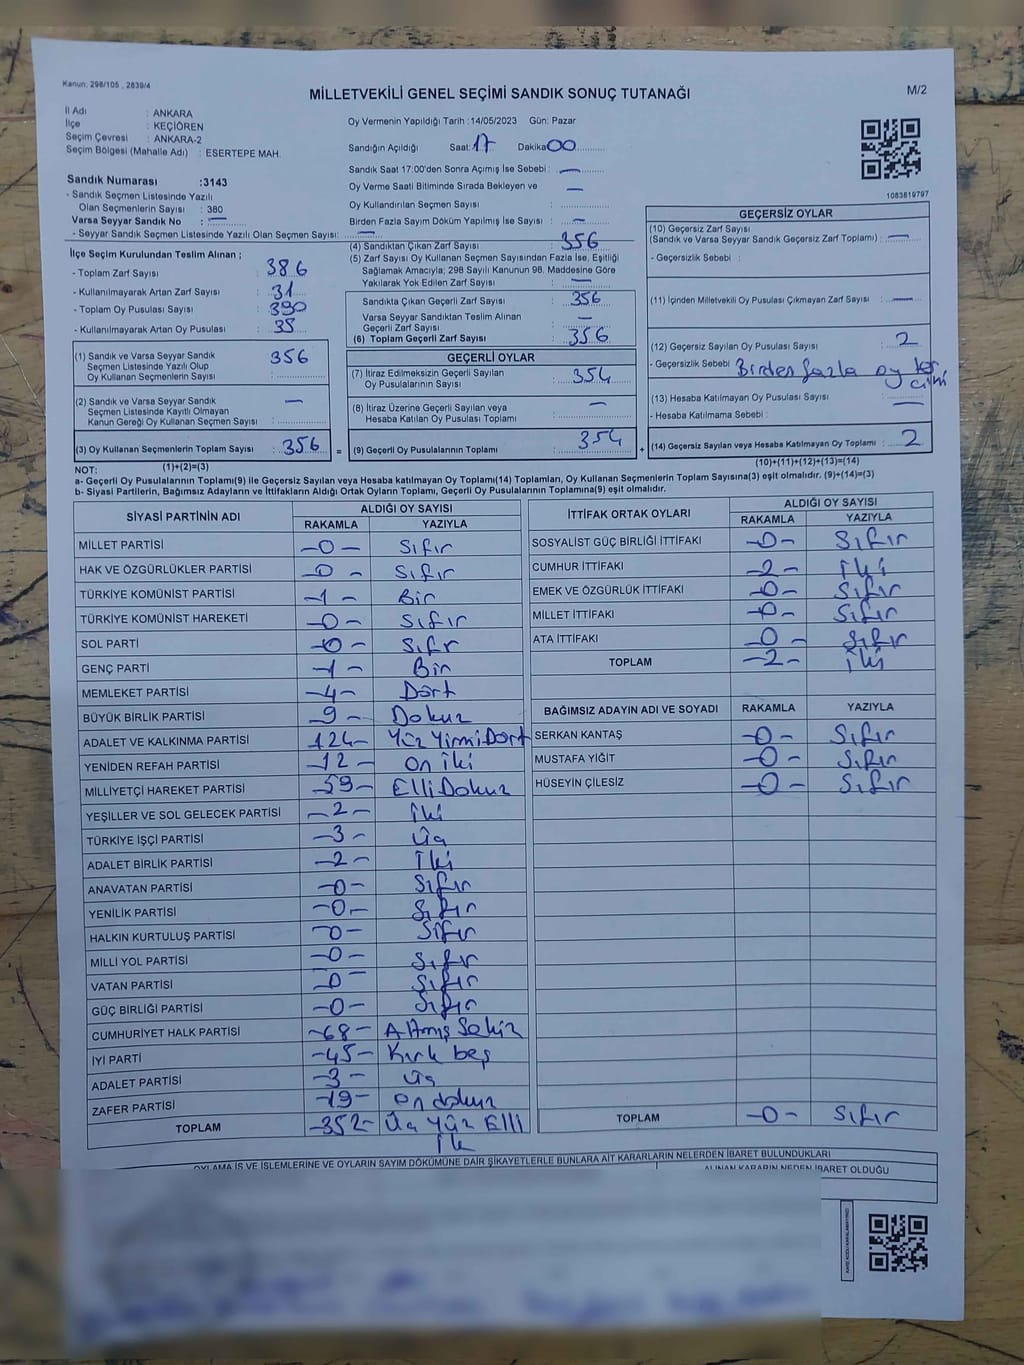 Kanun: 298/105 , 2839/4
MİLLETVEKİLİ GENEL SEÇİMİ SANDIK SONUÇ TUTANAĞI
M/2
İl Adı : ANKARA
İlçe : KEÇİÖREN
Seçim Çevresi : ANKARA-2
Seçim Bölgesi (Mahalle Adı) : ESERTEPE MAH.
Oy Vermenin Yapıldığı Tarih :14/05/2023 Gün: Pazar
Sandığın Açıldığı Saat: 17 Dakika 00
Sandık Saat 17:00'den Sonra Açımış İse Sebebi : —
Oy Verme Saati Bitiminde Sırada Bekleyen ve —
Oy Kullandırılan Seçmen Sayısı :
Birden Fazla Sayım Döküm Yapılmış İse Sayısı : —
1083619797
Sandık Numarası :3143
- Sandık Seçmen Listesinde Yazılı
Olan Seçmenlerin Sayısı : 380
Varsa Seyyar Sandık No : —
- Seyyar Sandık Seçmen Listesinde Yazılı Olan Seçmen Sayısı: —
İlçe Seçim Kurulundan Teslim Alınan ;
- Toplam Zarf Sayısı : 386
- Kullanılmayarak Artan Zarf Sayısı : 31
- Toplam Oy Pusulası Sayısı : 390
- Kullanılmayarak Artan Oy Pusulası : 35
(1) Sandık ve Varsa Seyyar Sandık 356
Seçmen Listesinde Yazılı Olup
Oy Kullanan Seçmenlerin Sayısı :
(2) Sandık ve Varsa Seyyar Sandık —
Seçmen Listesinde Kayıtlı Olmayan
Kanun Gereği Oy Kullanan Seçmen Sayısı :
(3) Oy Kullanan Seçmenlerin Toplam Sayısı : 356
(4) Sandıktan Çıkan Zarf Sayısı : 356
(5) Zarf Sayısı Oy Kullanan Seçmen Sayısından Fazla İse, Eşitliği
Sağlamak Amacıyla; 298 Sayılı Kanunun 98. Maddesine Göre
Yakılarak Yok Edilen Zarf Sayısı : —
Sandıkta Çıkan Geçerli Zarf Sayısı : 356
Varsa Seyyar Sandıktan Teslim Alınan —
Geçerli Zarf Sayısı :
(6) Toplam Geçerli Zarf Sayısı : 356
GEÇERLİ OYLAR
(7) İtiraz Edilmeksizin Geçerli Sayılan
Oy Pusulalarının Sayısı : 354
(8) İtiraz Üzerine Geçerli Sayılan veya —
Hesaba Katılan Oy Pusulası Toplamı :
= (9) Geçerli Oy Pusulalarının Toplamı : 354
GEÇERSİZ OYLAR
(10) Geçersiz Zarf Sayısı
(Sandık ve Varsa Seyyar Sandık Geçersiz Zarf Toplamı) : —
- Geçersizlik Sebebi :
(11) İçinden Milletvekili Oy Pusulası Çıkmayan Zarf Sayısı : —
(12) Geçersiz Sayılan Oy Pusulası Sayısı : 2
- Geçersizlik Sebebi : Birden fazla oy
(13) Hesaba Katılmayan Oy Pusulası Sayısı : —
- Hesaba Katılmama Sebebi :
+ (14) Geçersiz Sayılan veya Hesaba Katılmayan Oy Toplamı : 2
NOT: (1)+(2)=(3)
(10)+(11)+(12)+(13)=(14)
a- Geçerli Oy Pusulalarının Toplamı(9) ile Geçersiz Sayılan veya Hesaba katılmayan Oy Toplamı(14) Toplamları, Oy Kullanan Seçmenlerin Toplam Sayısına(3) eşit olmalıdır. (9)+(14)=(3)
b- Siyasi Partilerin, Bağımsız Adayların ve İttifakların Aldığı Ortak Oyların Toplamı, Geçerli Oy Pusulalarının Toplamına(9) eşit olmalıdır.
SİYASİ PARTİNİN ADI ALDIĞI OY SAYISI
RAKAMLA YAZIYLA
MİLLET PARTİSİ -0- Sıfır
HAK VE ÖZGÜRLÜKLER PARTİSİ -0- Sıfır
TÜRKİYE KOMÜNİST PARTİSİ -1- Bir
TÜRKİYE KOMÜNİST HAREKETİ -0- Sıfır
SOL PARTİ -0- Sıfr
GENÇ PARTİ -1- Bir
MEMLEKET PARTİSİ -4- Dört
BÜYÜK BİRLİK PARTİSİ -9- Dokuz
ADALET VE KALKINMA PARTİSİ 124- Yüz YirmiDört
YENİDEN REFAH PARTİSİ -12- On iki
MİLLİYETÇİ HAREKET PARTİSİ -59- ElliDokuz
YEŞİLLER VE SOL GELECEK PARTİSİ -2- iki
TÜRKİYE İŞÇİ PARTİSİ -3- Üç
ADALET BİRLİK PARTİSİ -2- İki
ANAVATAN PARTİSİ -0- Sıfır
YENİLİK PARTİSİ -0- Sıfır
HALKIN KURTULUŞ PARTİSİ -0- Sıfır
MİLLİ YOL PARTİSİ -0- Sıfır
VATAN PARTİSİ -0- Sıfır
GÜÇ BİRLİĞİ PARTİSİ -0- Sıfır
CUMHURİYET HALK PARTİSİ -68- Altmış Sekiz
İYİ PARTİ -45- Kırk beş
ADALET PARTİSİ -3- Üç
ZAFER PARTİSİ -19- On dokuz
TOPLAM -352- Üç Yüz Elli
İk
İTTİFAK ORTAK OYLARI ALDIĞI OY SAYISI
RAKAMLA YAZIYLA
SOSYALİST GÜÇ BİRLİĞİ İTTİFAKI -0- Sıfır
CUMHUR İTTİFAKI -2- İki
EMEK VE ÖZGÜRLÜK İTTİFAKI -0- Sıfır
MİLLET İTTİFAKI -0- Sıfır
ATA İTTİFAKI -0- Sıfır
TOPLAM -2- iki
BAĞIMSIZ ADAYIN ADI VE SOYADI RAKAMLA YAZIYLA
SERKAN KANTAŞ -0- Sıfır
MUSTAFA YİĞİT -0- Sıfır
HÜSEYİN ÇİLESİZ -0- Sıfır
TOPLAM -0- Sıfır
OYLAMA İŞ VE İŞLEMLERİNE VE OYLARIN SAYIM DÖKÜMÜNE DAİR ŞİKAYETLERLE BUNLARA AİT KARARLARIN NELERDEN İBARET BULUNDUKLARI
ALINAN KARARIN NEDEN İBARET OLDUĞU